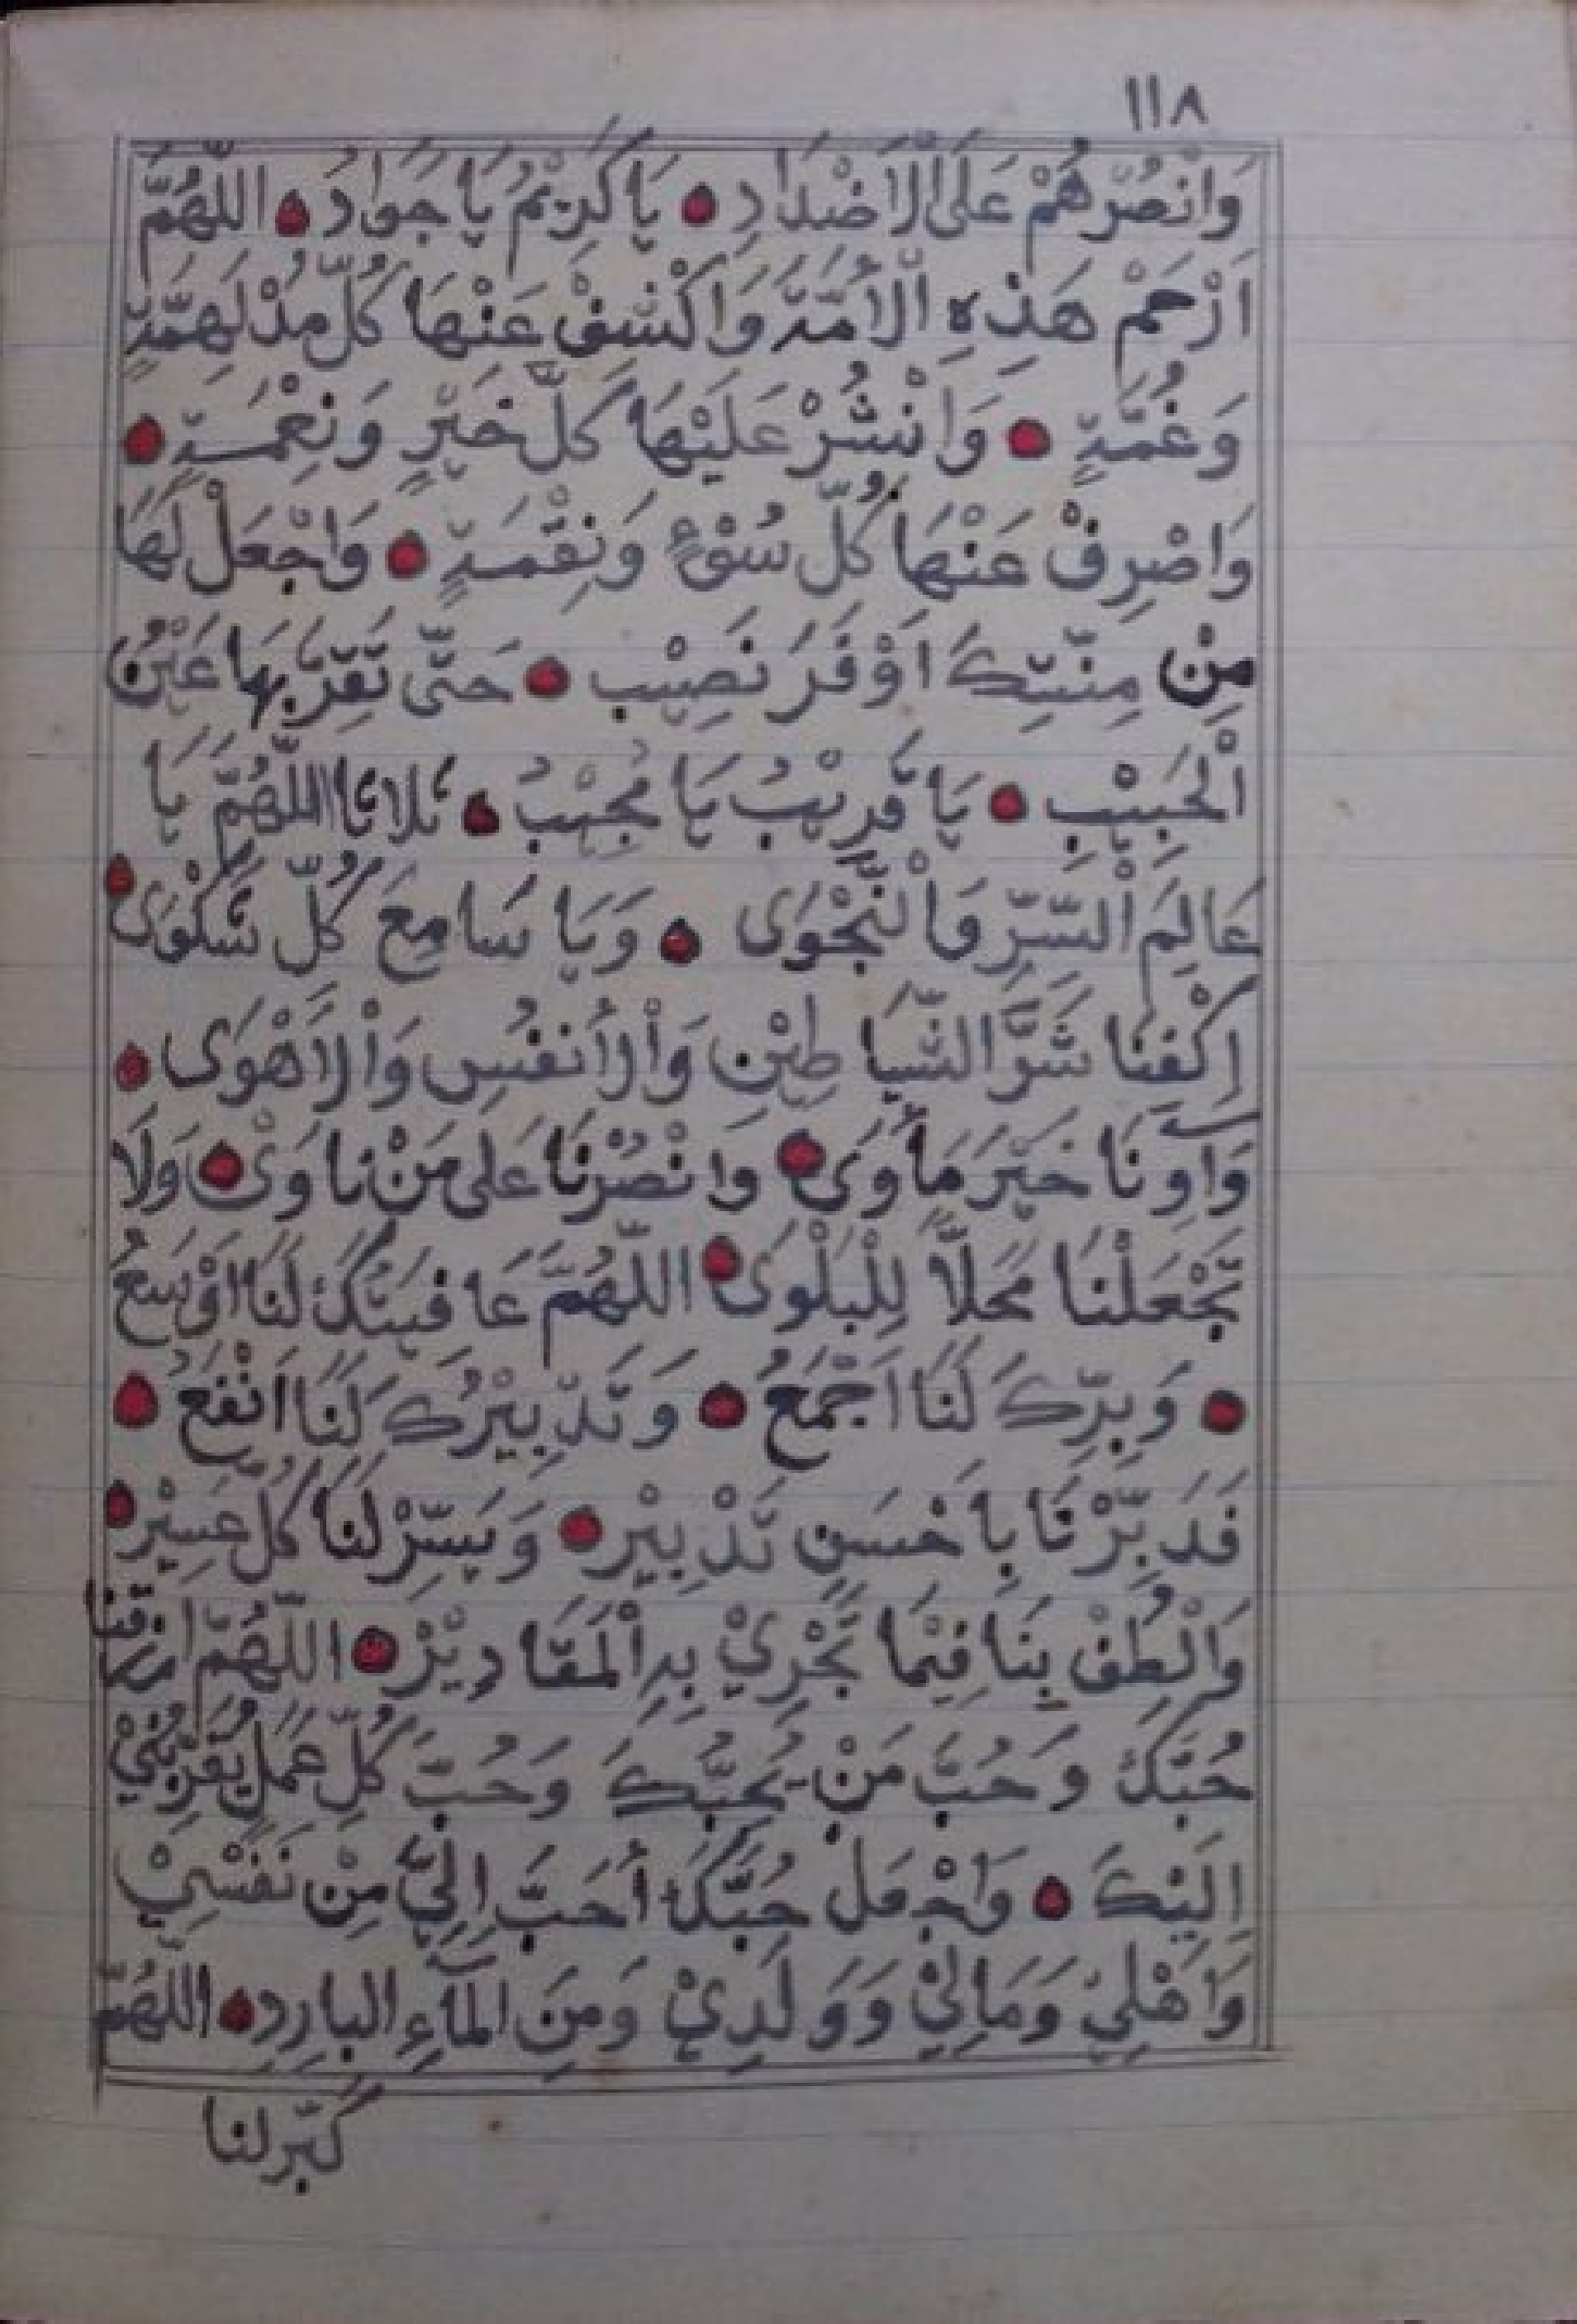 ١١٨
وَانْصُرْهُمْ عَلَى الْاَضْدَادِ ۝ يَا كَرِيْمُ يَا جَوَادُ ۝ اللّٰهُمَّ
ارْحَمْ هَذِهِ الْاُمَّةَ وَاكْشِفْ عَنْهَا كُلَّ مُدْلَهِمَّةٍ
وَغُمَّةٍ ۝ وَانْشُرْ عَلَيْهَا كُلَّ خَيْرٍ وَنِعْمَةٍ ۝
وَاصْرِفْ عَنْهَا كُلَّ سُوْءٍ وَنِقْمَةٍ ۝ وَاجْعَلْ لَهَا
مِنْ مِنَّتِكَ اَوْفَرَ نَصِيْب ۝ حَتَّى تَقِرَّ بِهَا عَيْنُ
الْحَبِيْبِ ۝ يَا قَرِيْبُ يَا مُجِيْبُ ۝ ثلاثا اللّٰهُمَّ يَا
عَالِمَ السِّرِّ وَالنَّجْوَى ۝ وَيَا سَامِعَ كُلِّ شَكْوَى ۝
اِكْفِنَا شَرَّ الشَّيَاطِيْنِ وَالْأَنْفُسِ وَالْاَهْوَى ۝
وَاٰوِنَا خَيْرَ مَأْوَى ۝ وَانْصُرْنَا عَلَى مَنْ نَاوَىْ ۝ وَلَا
تَجْعَلْنَا مَحَلاًّ لِلْبَلْوَى ۝ اللّٰهُمَّ عَافِيَتُكَ لَنَا اَوْسَعُ
۝ وَبِرُّكَ لَنَا اَجْمَعُ ۝ وَتَدْبِيْرُكَ لَنَا اَنْفَعُ ۝
فَدَبِّرْنَا بِاَحْسَنِ تَدْبِيْرٍ ۝ وَيَسِّرْ لَنَا كُلَّ عَسِيْرٍ ۝
وَالْطُفْ بِنَا فِيْمَا تَجْرِيْ بِهِ الْمَقَادِيْرُ ۝ اللّٰهُمَّ ارزقنا
حُبَّكَ وَحُبَّ مَنْ يُحِبُّكَ وَحُبَّ كُلِّ عَمَلٍ يُقَرِّبُنِيْ
اِلَيْكَ ۝ وَاجْعَلْ حُبَّكَ أَحَبَّ اِلَيَّ مِنْ نَفْسِيْ
وَاَهْلِيْ وَمَالِيْ وَوَلَدِيْ وَمِنَ الْمَاءِ البارِدِ ۝ اللّٰهُمَّ
كبّر لنا